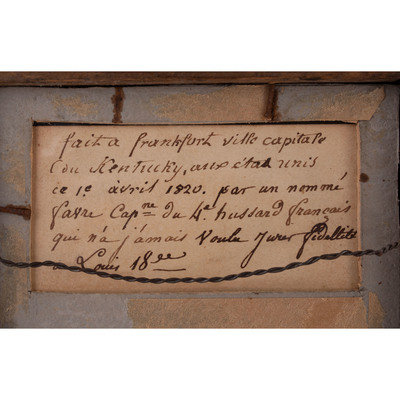 fait a frankfort ville capitale
du Kentucky, aux états unis
ce 1.e avril 1820. par un nommé
favre Capne du 4e hussard français
qui n'a j'amais voulu Jurer fidellité
a Louis 18ee